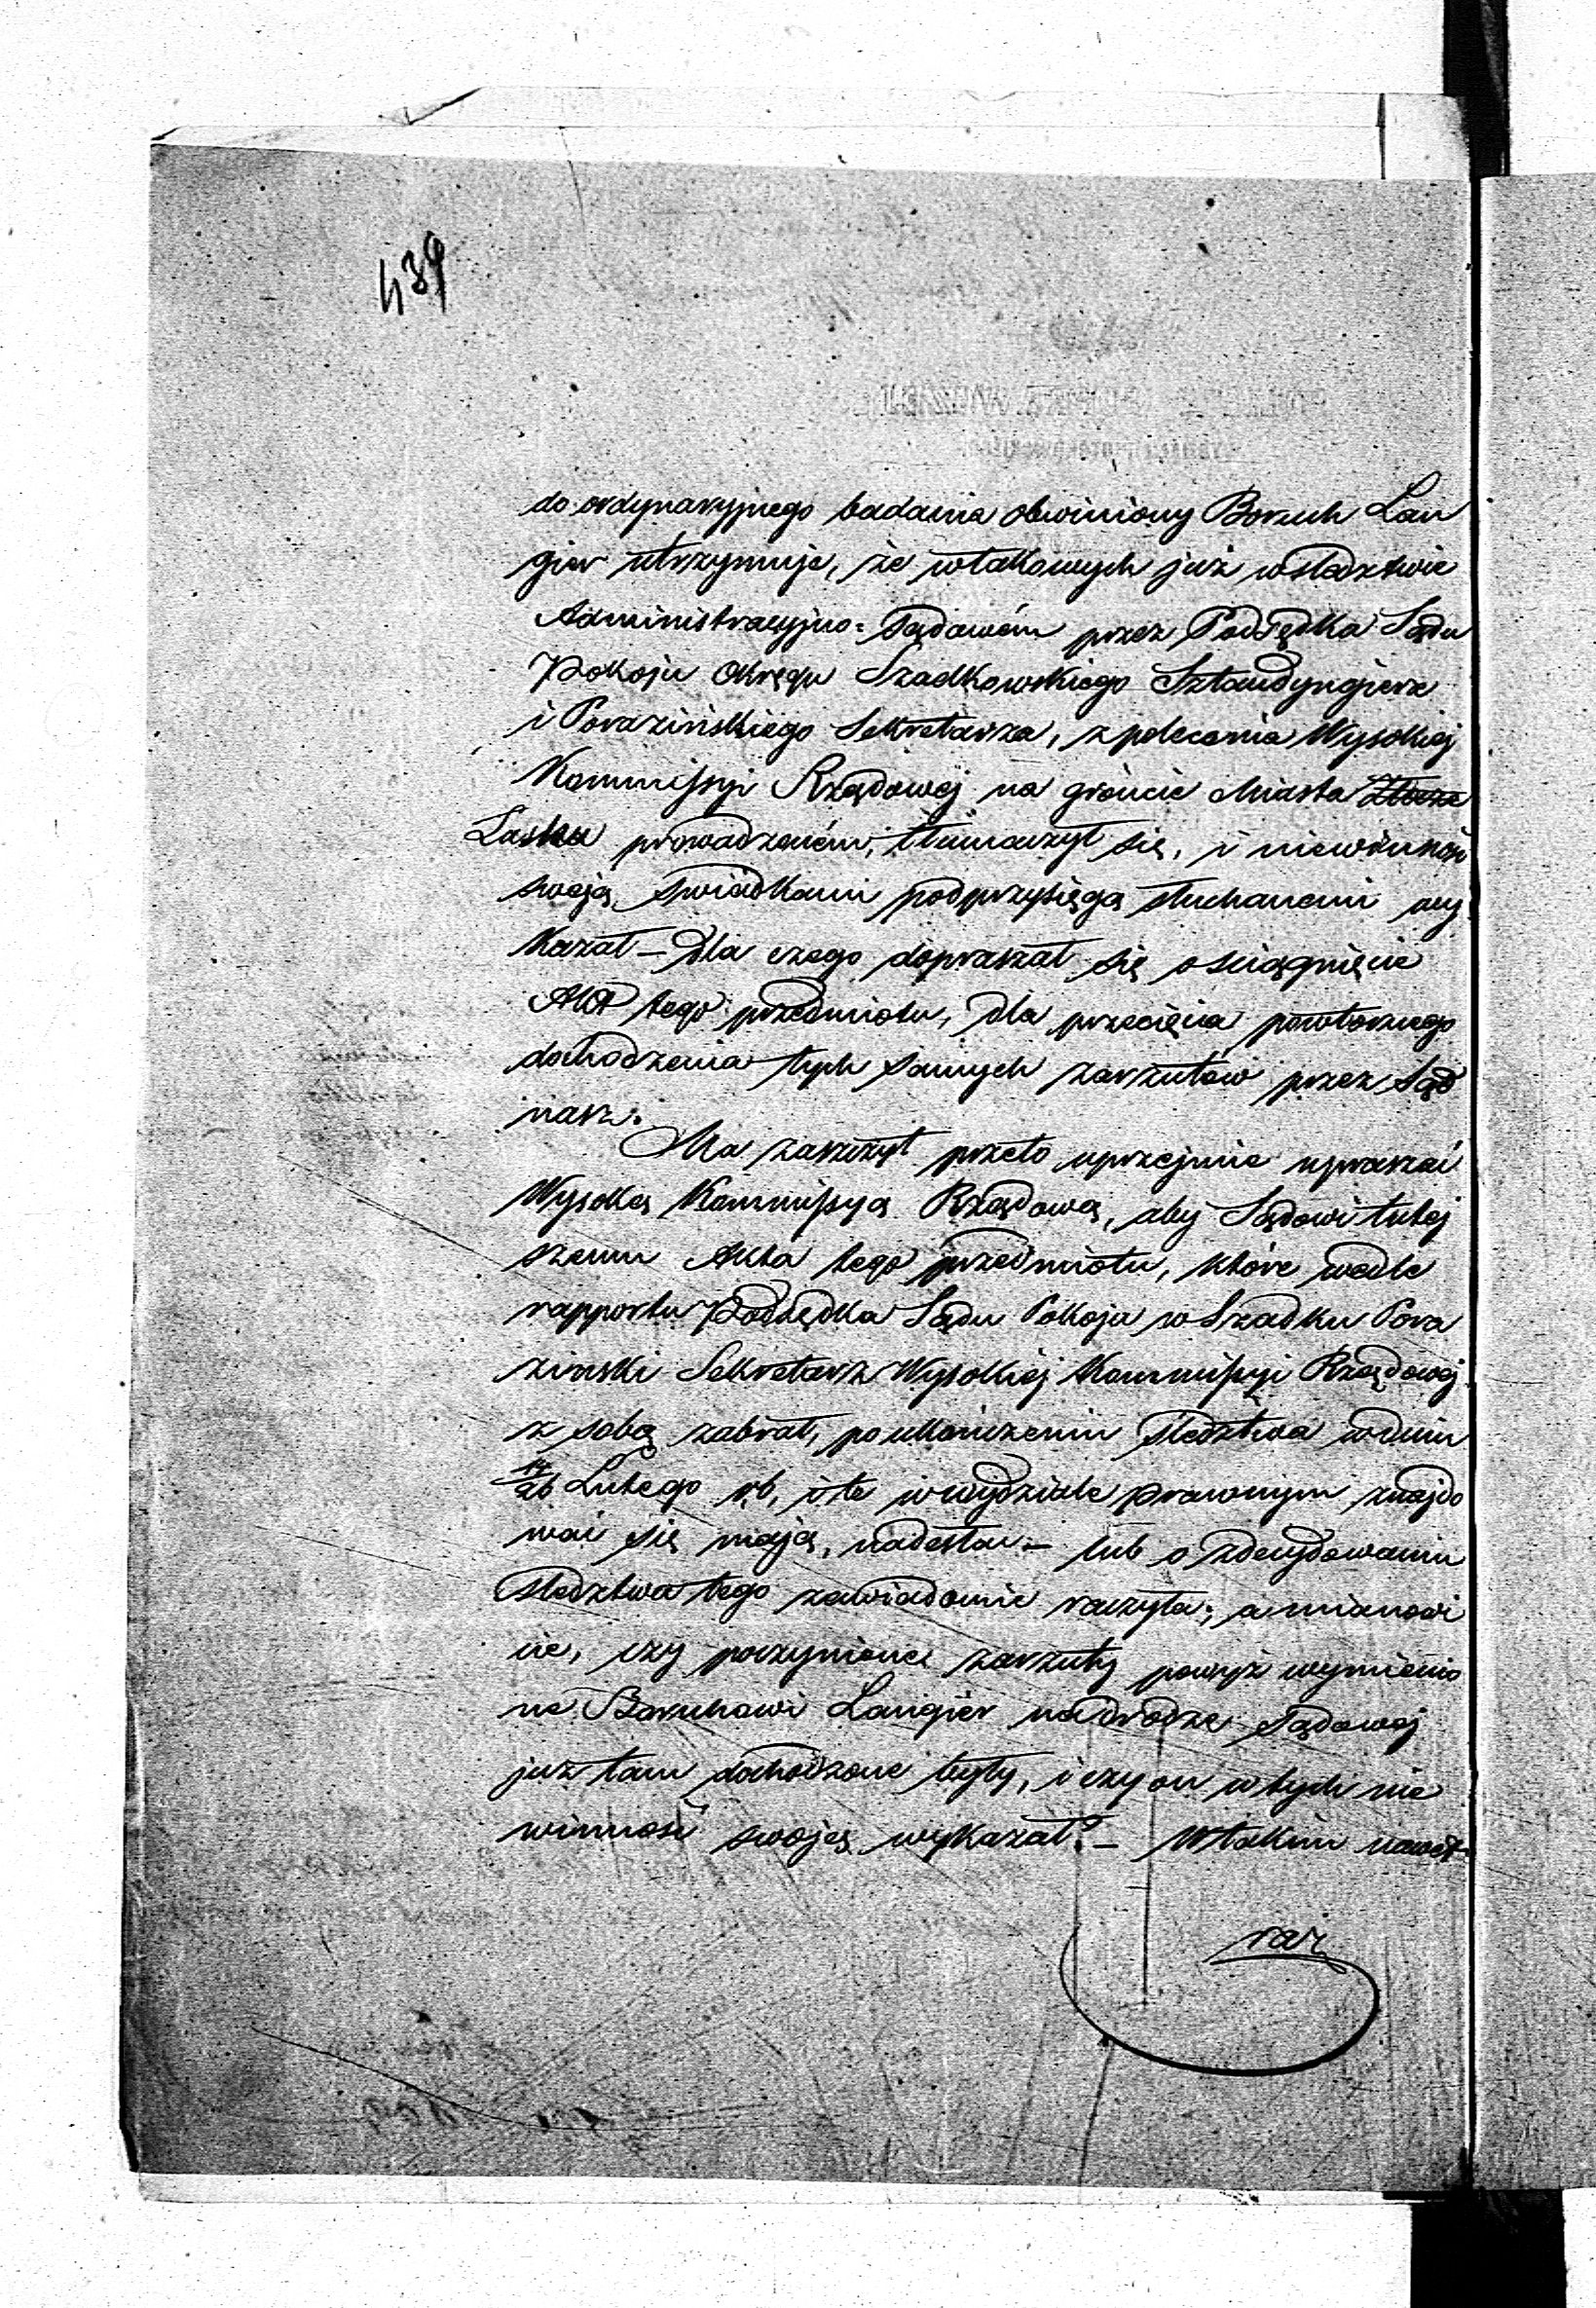 439
do ordynaryjnego badania obwiniony Boruch Lan
gier utrzymuje, że wtakowych już wśledztwie
Administracyjno-Sądowém przez Podsędka Sądu
Pokoju Okręgu Szadkowskiego Sztaudyngiera
i Porazińskiego Sekretarza, z polecenia Wysokiéj
Kommissyi Rządowej na gróncie Miasta
Lasku prowadzoném, tłumaczył się, i niewinność
swoją świadkami podprzysięgą słuchanemi wy
kazał – dla czego dopraszał się o ściągnięcie
Akt tego przedmiotu, dla przecięcia powtórnego
dochodzenia tych samych zarzutów przez Sąd
nasz.
Ma zaszczyt przeto uprzejmie upraszać
Wysoką Kommissyą Rządową, aby Sądowi tutej
szemu Akta tego przedmiotu, które wedle
rapportu Podsędka Sądu Pokoju w Szadku Pora
ziński Sekretarz Wysokiéj Kommissyi Rządowej
z sobą zabrał, po ukończeniu śledztwa w dniu
14/26 Lutego r.b, i te w wydziale prawnym znajdo
wać się mają, nadesłać – lub o zdecydowaniu
śledztwa tego zawiadomić raczyła; a mianowi
cie, czy poczynione zarzuty powyż wymienio
ne Boruchowi Langier na drodze Sądowej
już tam dochodzone były, i czy on w tych nie
winność swoją wykazał? – W takim nawet
raz